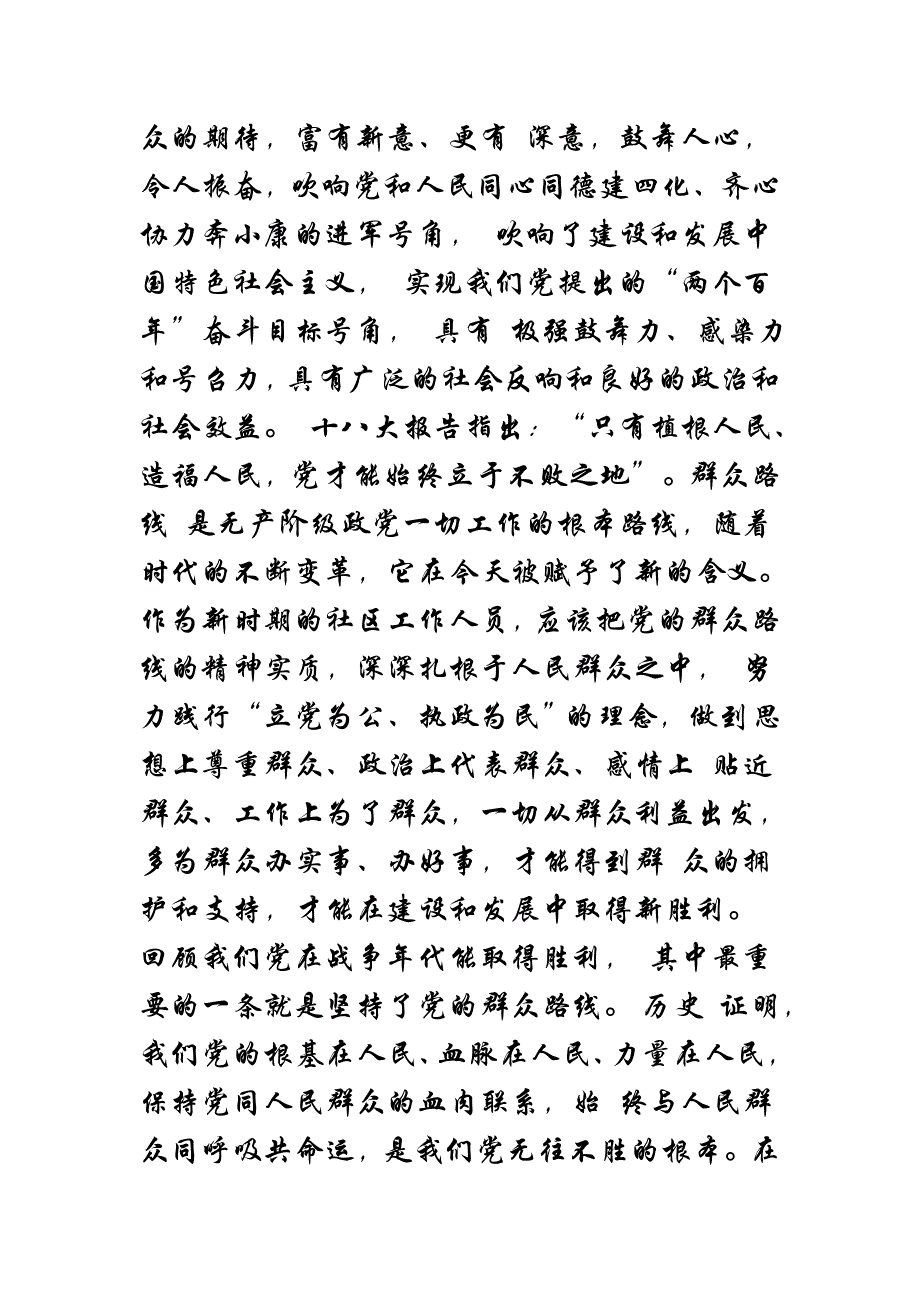 众的期待，富有新意、更有 深意，鼓舞人心，
令人振奋，吹响党和人民同心同德建四化、齐心
协力奔小康的进军号角， 吹响了建设和发展中
国特色社会主义， 实现我们党提出的“两个百
年”奋斗目标号角， 具有 极强鼓舞力、感染力
和号召力，具有广泛的社会反响和良好的政治和
社会效益。 十八大报告指出：“只有植根人民、
造福人民，党才能始终立于不败之地”。群众路
线 是无产阶级政党一切工作的根本路线，随着
时代的不断变革，它在今天被赋予了新的含义。
作为新时期的社区工作人员，应该把党的群众路
线的精神实质，深深扎根于人民群众之中， 努
力践行“立党为公、执政为民”的理念，做到思
想上尊重群众、政治上代表群众、感情上 贴近
群众、工作上为了群众，一切从群众利益出发，
多为群众办实事、办好事，才能得到群 众的拥
护和支持，才能在建设和发展中取得新胜利。
回顾我们党在战争年代能取得胜利， 其中最重
要的一条就是坚持了党的群众路线。 历史 证明，
我们党的根基在人民、血脉在人民、力量在人民，
保持党同人民群众的血肉联系，始 终与人民群
众同呼吸共命运，是我们党无往不胜的根本。在